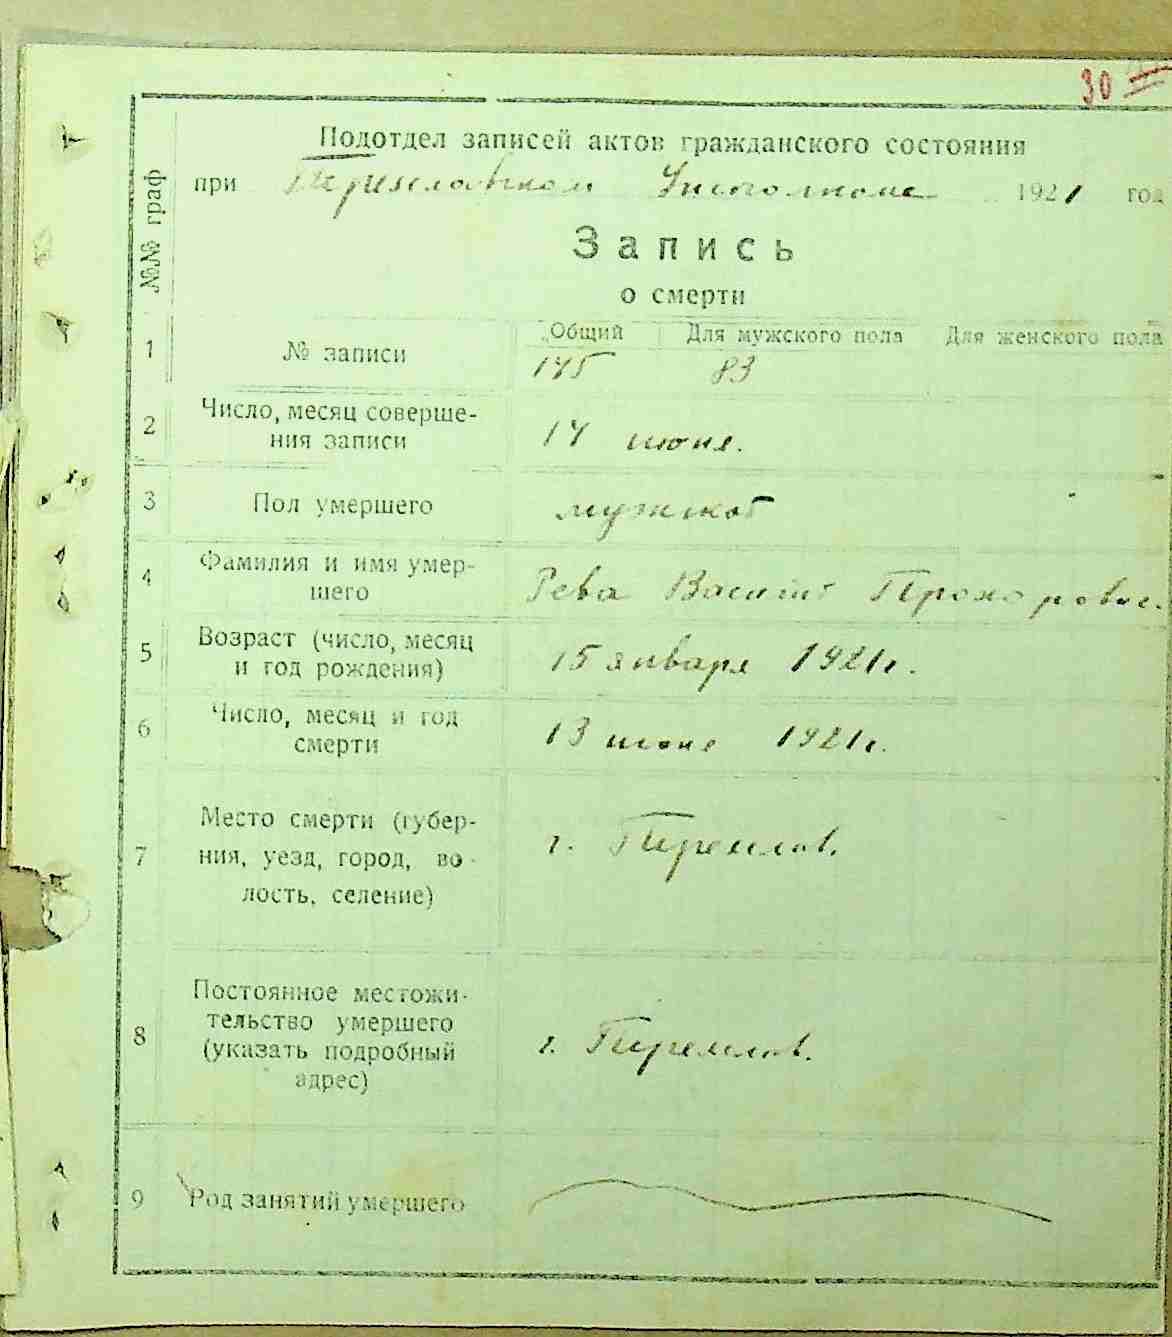 30
Подотдел записей актов гражданского состояния
при Исполкоме 1921 год
№№ граф
Запись
о смерти
1 № записи Общий Для мужского пола Для женского пола
145 83
2 Число, месяц соверше-
ния записи 14 июня.
3 Пол умершего мужской
4 Фамилия и имя умер-
шего Рева Василий Прохорович
5 Возраст (число, месяц
и год рождения) 15 января 1921 г.
6 Число, месяц и год
смерти 13 июня 1921 г.
Место смерти (губер-
7 ния, уезд, город, во-
лость, селение) г.
Постоянное местожи-
тельство умершего
8 (указать подробный
адрес) г.
9 Род занятий умершего